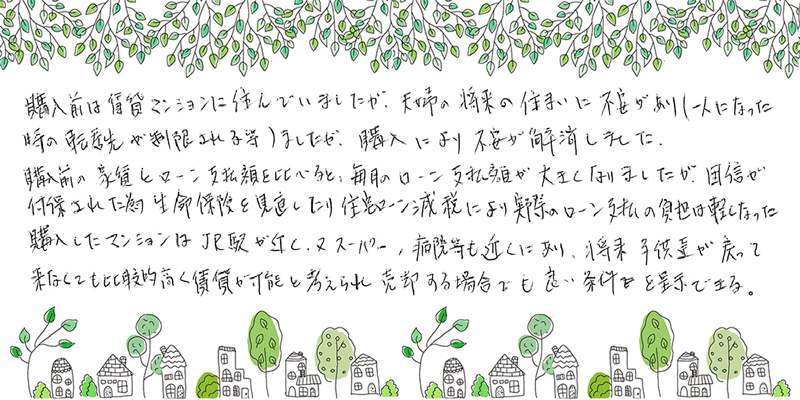 購入前は賃貸マンションに住んでいましたが、夫婦の将来の住まいに不安があり(一人になった
時の転居先が制限される等)ましたが、購入により不安が解消しました。
購入前の家賃とローン支払額を比べると、毎月のローン支払額が大きくなりましたが、団信が
付保された為生命保険を見直したり住宅ローン減税により実際のローン支払の負担は軽くなった
購入したマンションはJR駅が近く、又スーパー、病院等も近くにあり、将来子供達が戻って
来なくても比較的高く賃貸が可能と考えられ売却する場合でも良い条件を呈示できる。